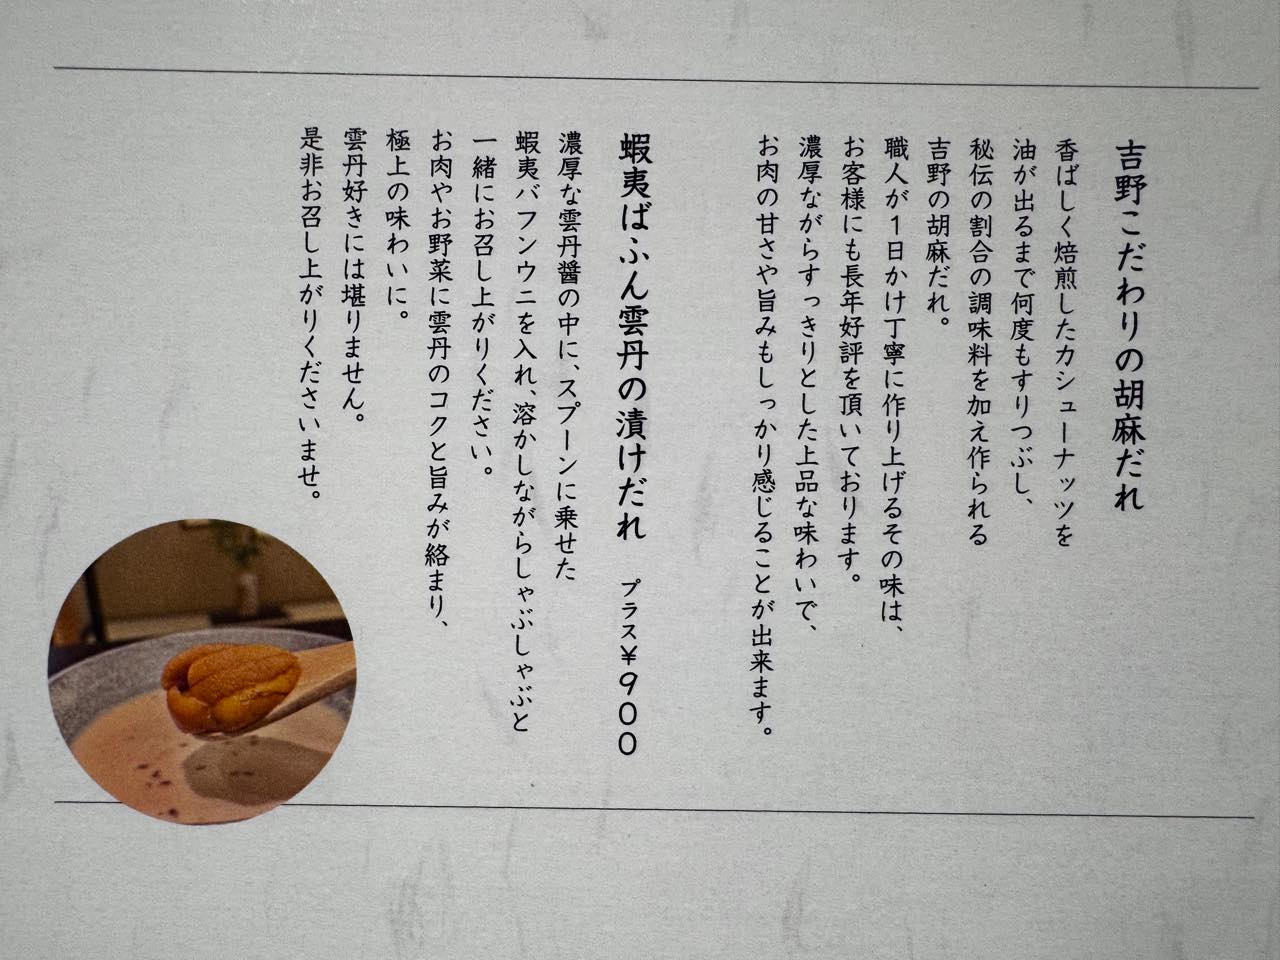 吉野こだわりの胡麻だれ
香ばしく焙煎したカシューナッツを
油が出るまで何度もすりつぶし、
秘伝の割合の調味料を加え作られる
吉野の胡麻だれ。
職人が1日かけ丁寧に作り上げるその味は、
お客様にも長年好評を頂いております。
濃厚ながらすっきりとした上品な味わいで、
お肉の甘さや旨みもしっかり感じることが出来ます。
蝦夷ばふん雲丹の漬けだれ プラス¥900
濃厚な雲丹醤の中に、スプーンに乗せた
蝦夷バフンウニを入れ、溶かしながらしゃぶしゃぶと
一緒にお召し上がりください。
お肉やお野菜に雲丹のコクと旨みが絡まり、
極上の味わいに。
雲丹好きには堪りません。
是非お召し上がりくださいませ。